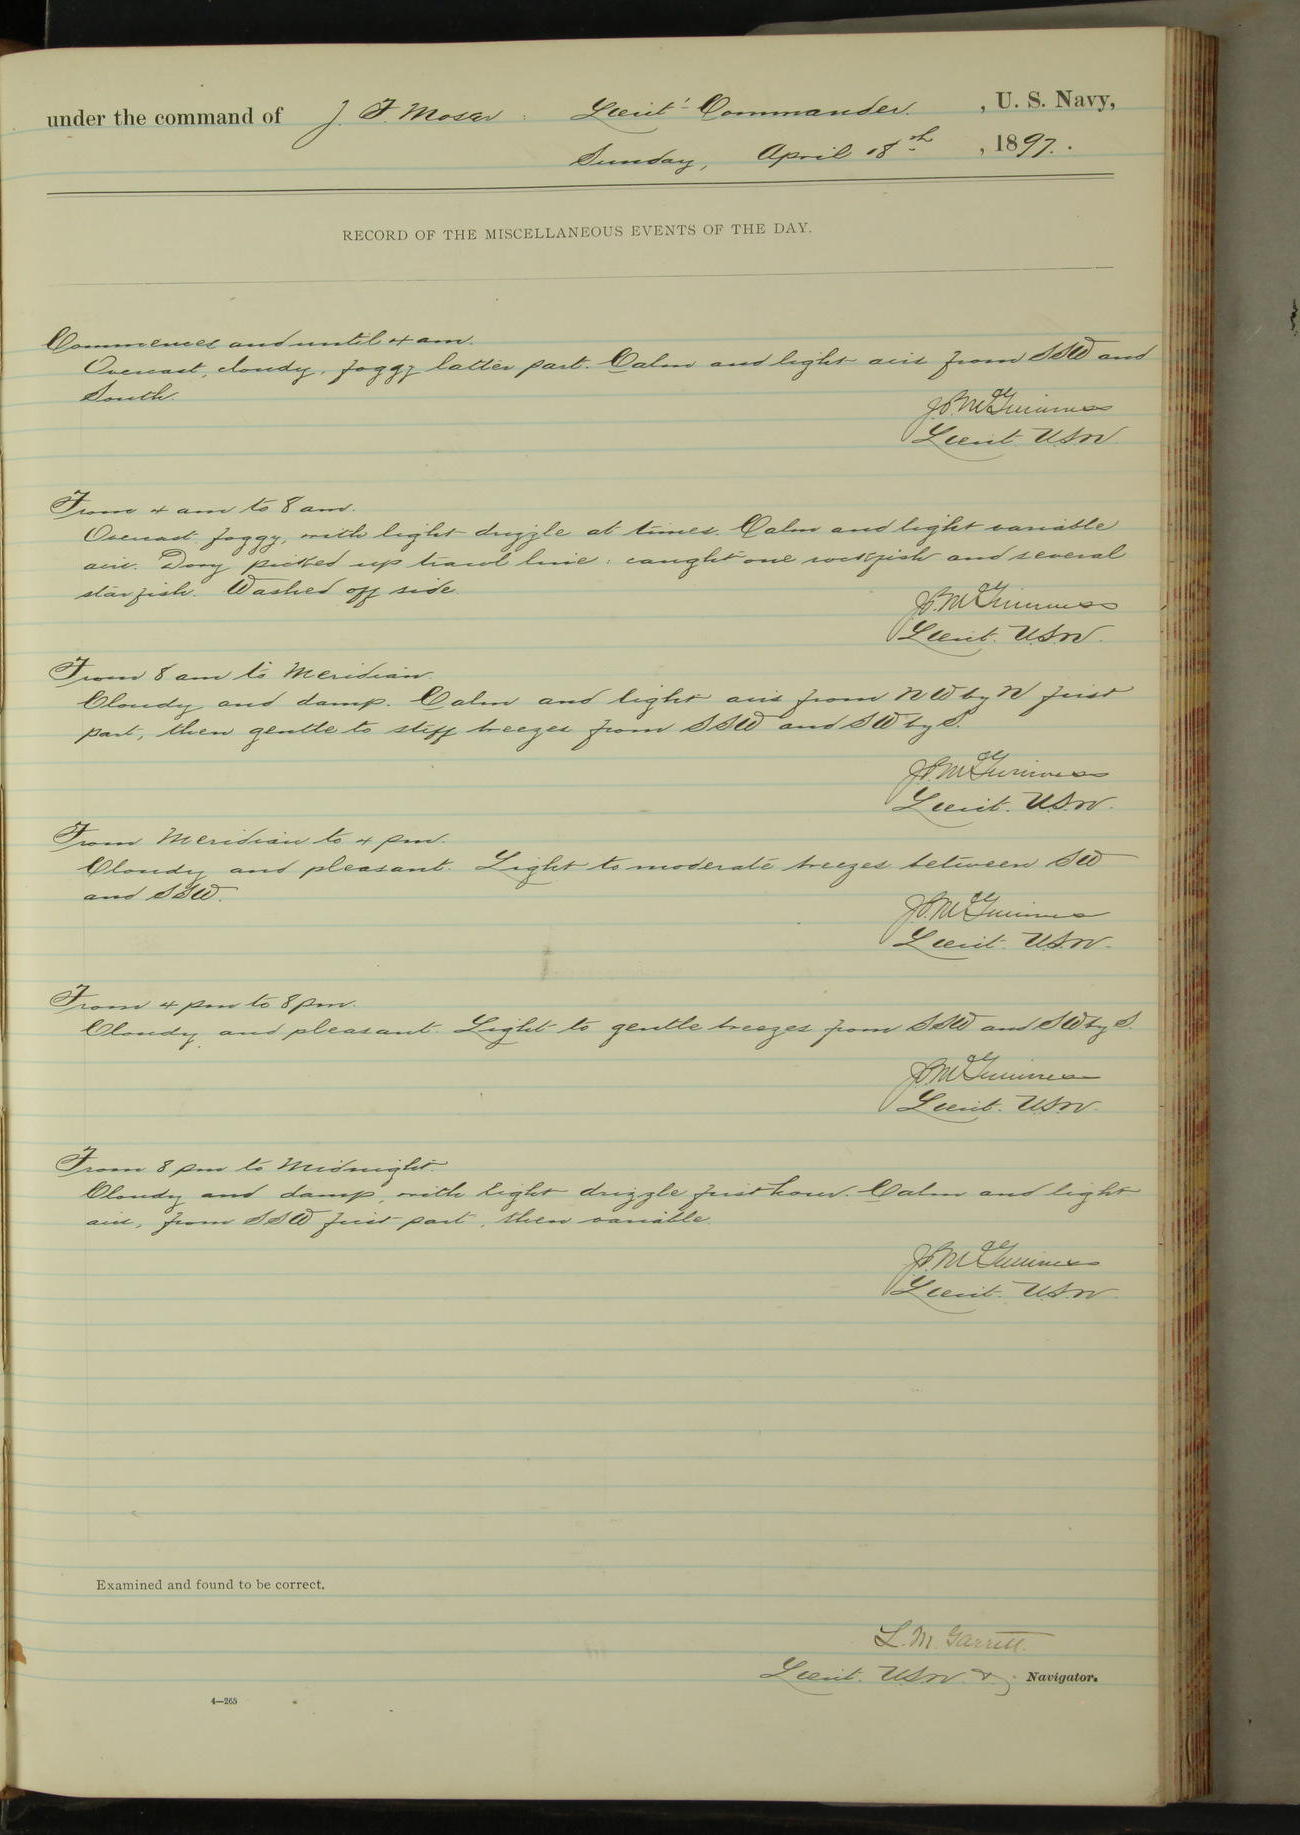 under the command of J. F. Moser. Lieut. Commander. , U. S. Navy,
Sunday, April 18th , 1897.
RECORD OF THE MISCELLANEOUS EVENTS OF THE DAY.
Commences and until 4 am.
Overcast, cloudy, foggy latter part. Calm and light airs from SSW and
South.
J.P. McGuinness
Lieut. U.S.N
From 4 am to 8 am.
Overcast, foggy, with light drizzle at times. Calm and light variable
airs. Dory picked up trawl line; caught one rockfish and several
starfish. Washed off side.
J.P. McGuinness
Lieut. U.S.N.
From 8 am to Meridian.
Cloudy and damp. Calm and light airs from NW by N first
part, then gentle to stiff breezes from SSW and SW by S.
J.P. McGuinness
Lieut. U.S.N.
From Meridian to 4 pm.
Cloudy and pleasant. Light to moderate breezes between SW
and SSW.
J.P. McGuinness
Lieut. U.S.N.
From 4 pm to 8 pm.
Cloudy and pleasant. Light to gentle breezes from SSW and SW by S.
J.P. McGuinness
Lieut. U.S.N.
From 8 pm to Midnight.
Cloudy and damp, with light drizzle first hour. Calm and light
airs, from SSW first part, then variable.
J.P. McGuinness
Lieut. U.S.N.
Examined and found to be correct.
L. M. Garrett.
Lieut. U.S.N. & Navigator.
4—265